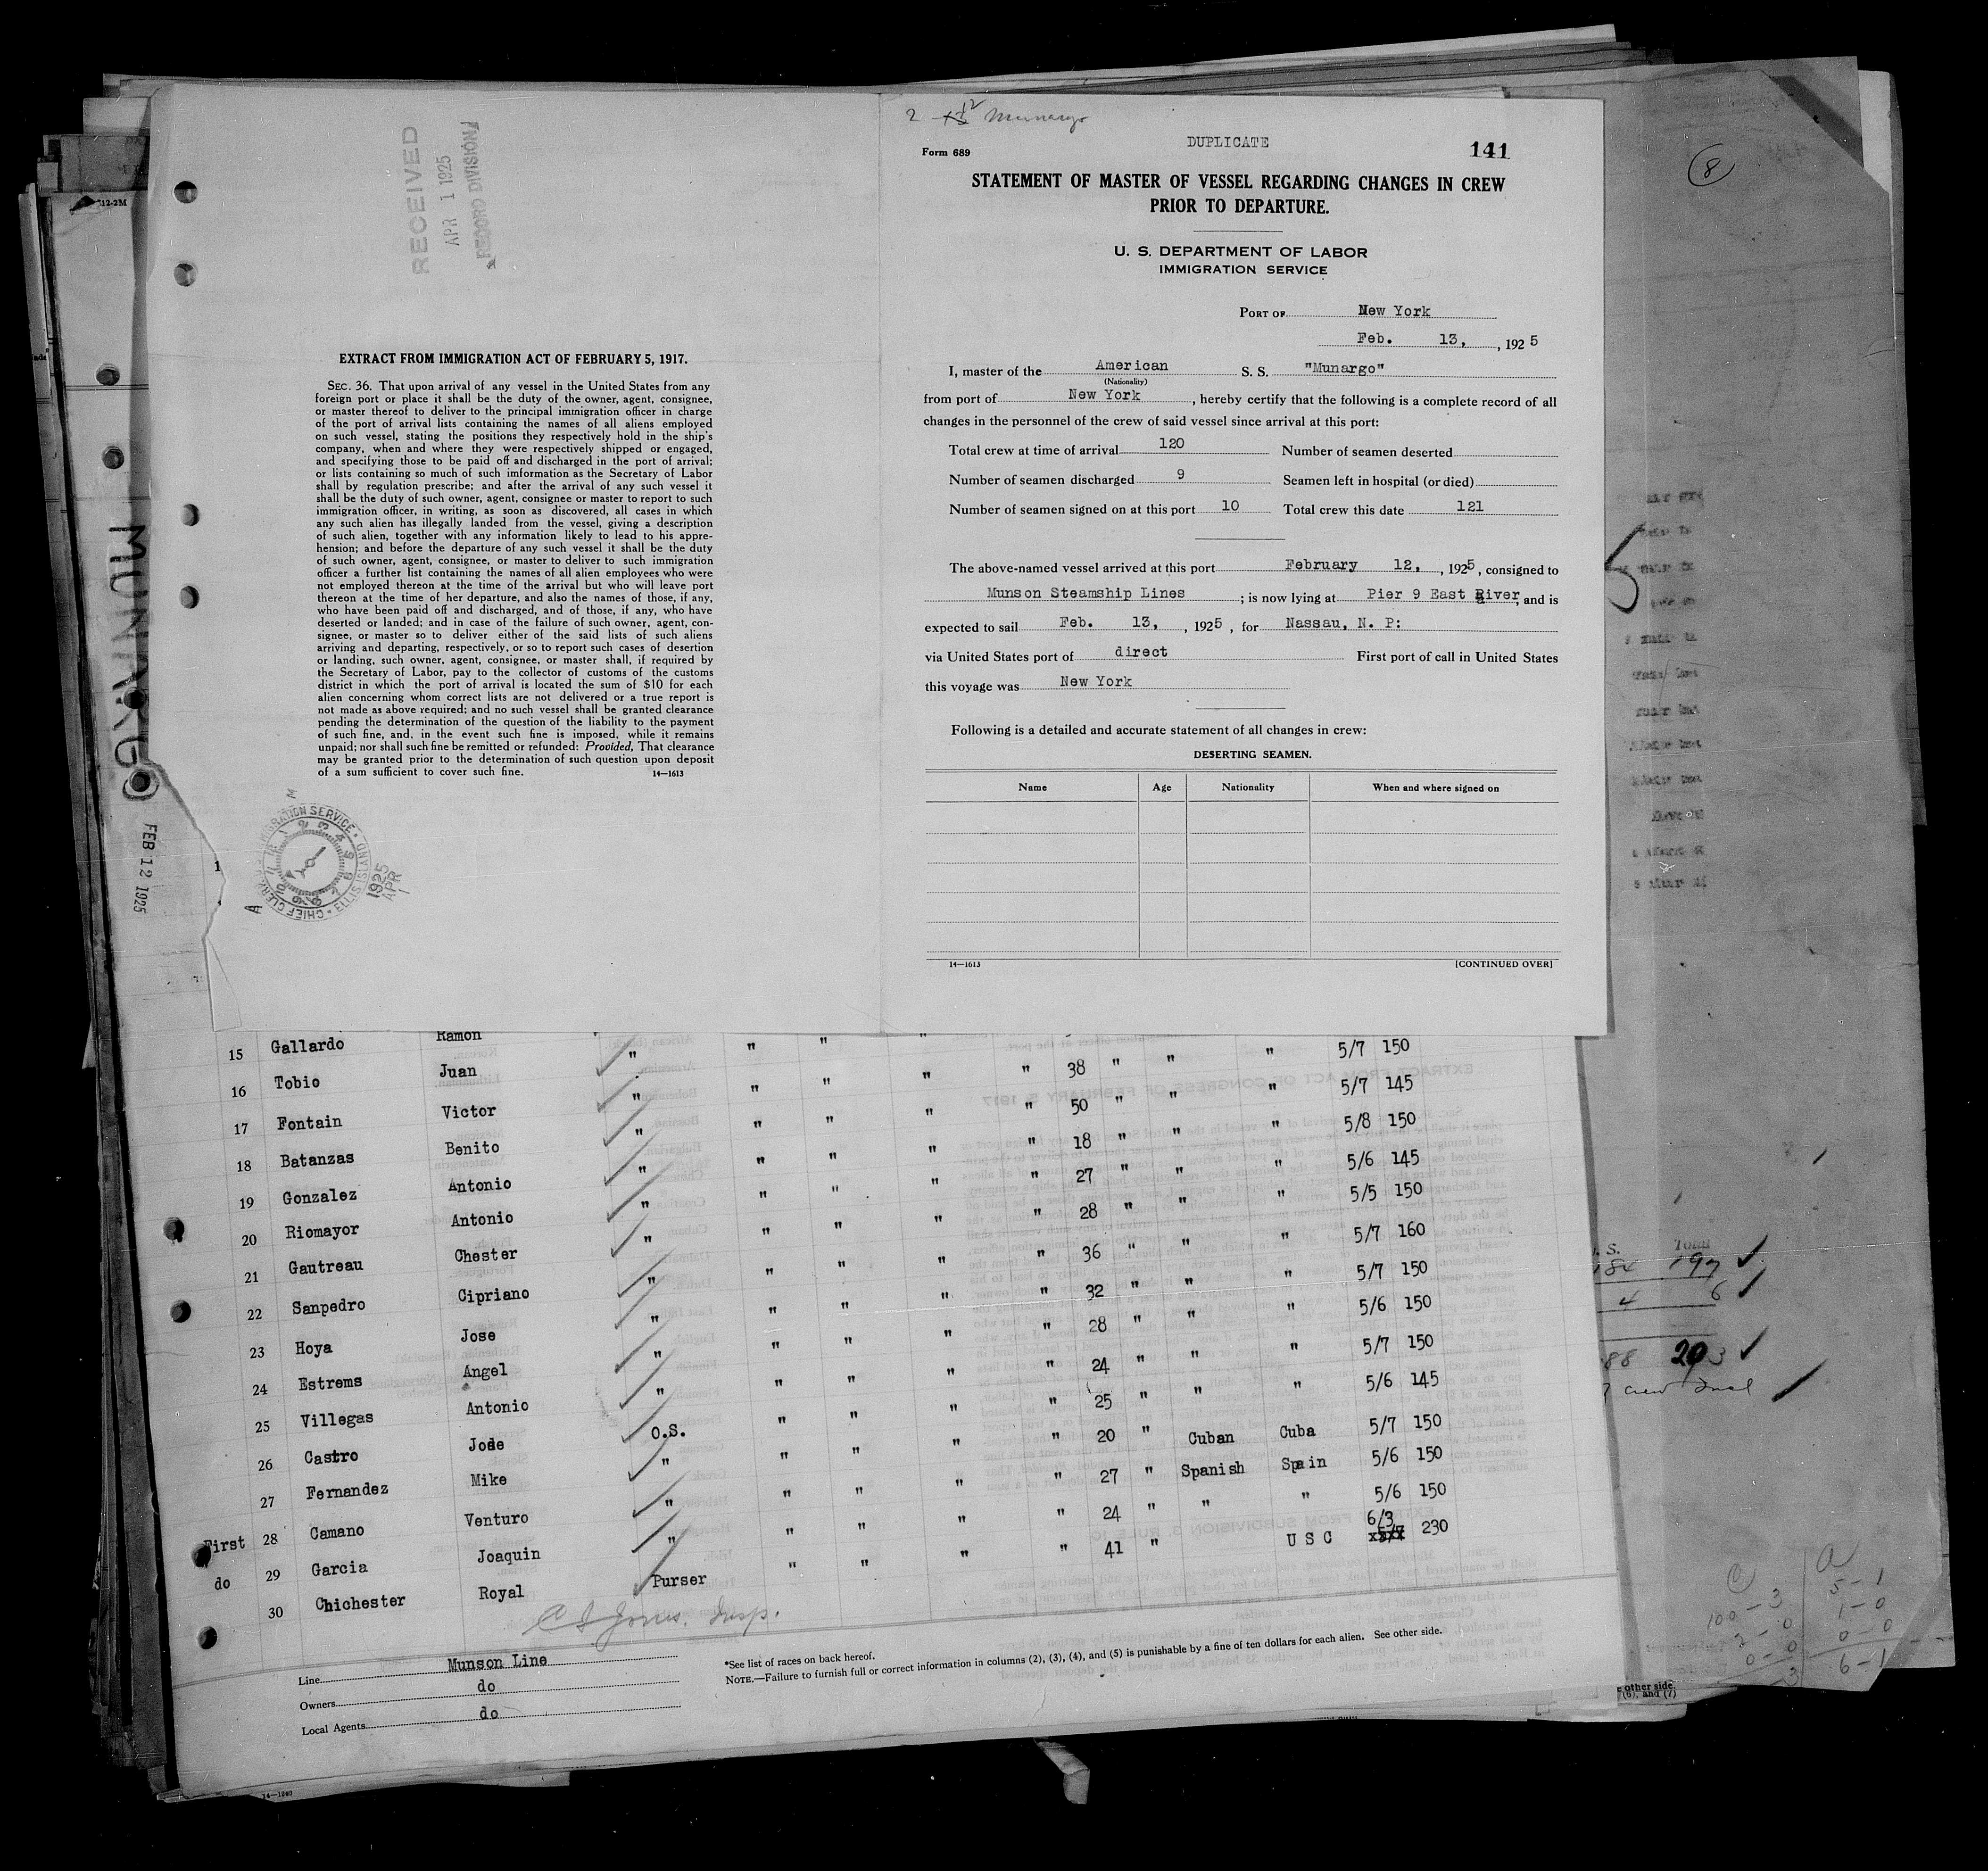 RECEIVED
APR 1 1925
RECORD DIVISION
EXTRACT FROM IMMIGRATION ACT OF FEBRUARY 5, 1917.
SEC. 36. That upon arrival of any vessel in the United States from any
foreign port or place it shall be the duty of the owner, agent, consignee,
or master thereof to deliver to the principal immigration officer in charge
of the port of arrival lists containing the names of all aliens employed
on such vessel, stating the positions they respectively hold in the ship's
company, when and where they were respectively shipped or engaged,
and specifying those to be paid off and discharged in the port of arrival;
or lists containing so much of such imformation as the Secretary of Labor
shall by regulation prescribe; and after the arrival of any such vessel it
shall be the duty of such owner, agent, consignee or master to report to such
immigration officer, in writing, as soon as discovered, all cases in which
any such alien has illegally landed from the vessel, giving a description
of such alien, together with any information likely to lead to his appre-
hension; and before the departure of any such vessel it shall be the duty
of such owner, agent, consignee, or master to deliver to such immigration
officer a further list containing the names of all alien employees who were
not employed thereon at the time of the arrival but who will leave port
thereon at the time of her departure, and also the names of those, if any,
who have been paid off and discharged, and of those, if any, who have
deserted or landed; and in case of the failure of such owner, agent, con-
signee, or master so to deliver either of the said lists of such aliens
arriving and departing, respectively, or so to report such cases of desertion
or landing, such owner, agent, consignee, or master shall, if required by
the Secretary of Labor, pay to the collector of customs of the customs
district in which the port of arrival is located the sum of $10 for each
alien concerning whom correct lists are not delivered or a true report is
not made as above required; and no such vessel shall be granted clearance
pending the determination of the question of the liability to the payment
of such fine, and, in the event such fine is imposed, while it remains
unpaid; nor shall such fine be remitted or refunded: Provided, That clearance
may be granted prior to the determination of such question upon deposit
of a sum sufficient to cover such fine. 14—1613
1925 APR 1
MUNARGO
FEB 12 1925
2 12 Munargo
DUPLICATE
Form 689
141
STATEMENT OF MASTER OF VESSEL REGARDING CHANGES IN CREW
PRIOR TO DEPARTURE.
U. S. DEPARTMENT OF LABOR
IMMIGRATION SERVICE
PORT OF New York
Feb. 13, , 1925
I, master of the American S. S. "Munargo"
(Nationality)
from port of New York , hereby certify that the following is a complete record of all
changes in the personnel of the crew of said vessel since arrival at this port:
Total crew at time of arrival 120 Number of seamen deserted
Number of seamen discharged 9 Seamen left in hospital (or died)
Number of seamen signed on at this port 10 Total crew this date 121
The above-named vessel arrived at this port February 12, , 1925, consigned to
Munson Steamship Lines ; is now lying at Pier 9 East River, and is
expected to sail Feb. 13, , 1925 , for Nassau, N. P:
via United States port of direct First port of call in United States
this voyage was New York
Following is a detailed and accurate statement of all changes in crew:
DESERTING SEAMEN.
Name Age Nationality When and where signed on
14—1613 [CONTINUED OVER]
8
15 Gallardo Ramon " " " " " " " 5/7 150
16 Tobio Juan " " " " " 38 " " " 5/7 145
17 Fontain Victor " " " " " 50 " " " 5/8 150
18 Batanzas Benito " " " " " 18 " " " 5/6 145
19 Gonzalez Antonio " " " " " 27 " " " 5/5 150
20 Riomayor Antonio " " " " " 28 " " " 5/7 160
21 Gautreau Chester " " " " " 36 " " " 5/7 150
22 Sanpedro Cipriano " " " " " 32 " " " 5/6 150
23 Hoya Jose " " " " " 28 " " " 5/7 150
24 Estrems Angel " " " " " 24 " " " 5/6 145
25 Villegas Antonio O.S. " " " " 25 " " " 5/7 150
26 Castro Jose " " " " " 20 " Cuban Cuba 5/6 150
27 Fernandez Mike " " " " " 27 " Spanish Spain 5/6 150
First 28 Camano Venturo " " " " " 24 " " " 6/3
do 29 Garcia Joaquin " " " " " 41 " U S C 5/7 230
30 Chichester Royal Purser
C I Jones. Insp.
Line Munson Line
Owners do
Local Agents do
*See list of races on back hereof.
NOTE.—Failure to furnish full or correct information in columns (2), (3), (4), and (5) is punishable by a fine of ten dollars for each alien. See other side.
S. Total
184 197
4 6
88 203
crew Incl